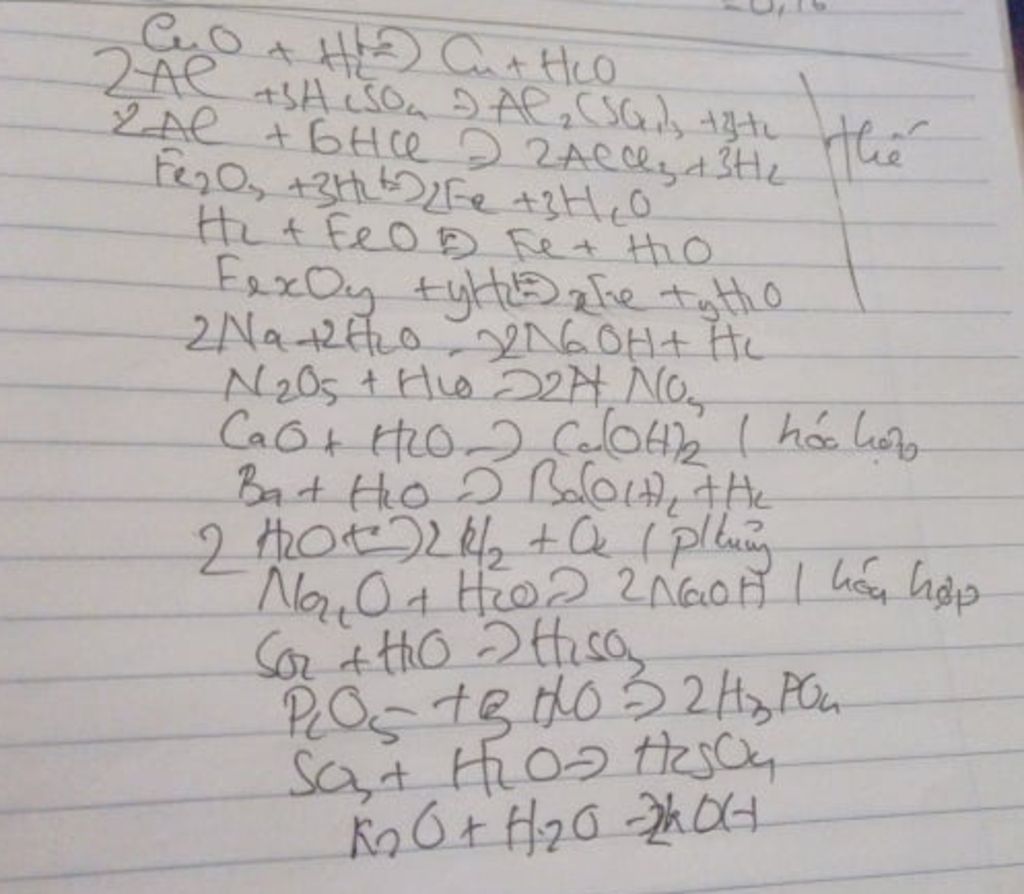 = 0,16
CuO + H2 t°→ Cu + H2O
2Al + 3H2SO4 → Al2(SO4)3 + 3H2
2Al + 6HCl → 2AlCl3 + 3H2
thế
Fe2O3 + 3H2 t°→ 2Fe + 3H2O
H2 + FeO t°→ Fe + H2O
FexOy + yH2 t°→ xFe + yH2O
2Na + 2H2O → 2NaOH + H2
N2O5 + H2O → 2HNO3
CaO + H2O → Ca(OH)2 / hóa hợp
Ba + H2O → Ba(OH)2 + H2
2H2O t°→ 2H2 + O2 / p/huỷ
Na2O + H2O → 2NaOH / hóa hợp
SO2 + H2O → H2SO3
P2O5 + 3H2O → 2H3PO4
SO3 + H2O → H2SO4
K2O + H2O → 2KOH